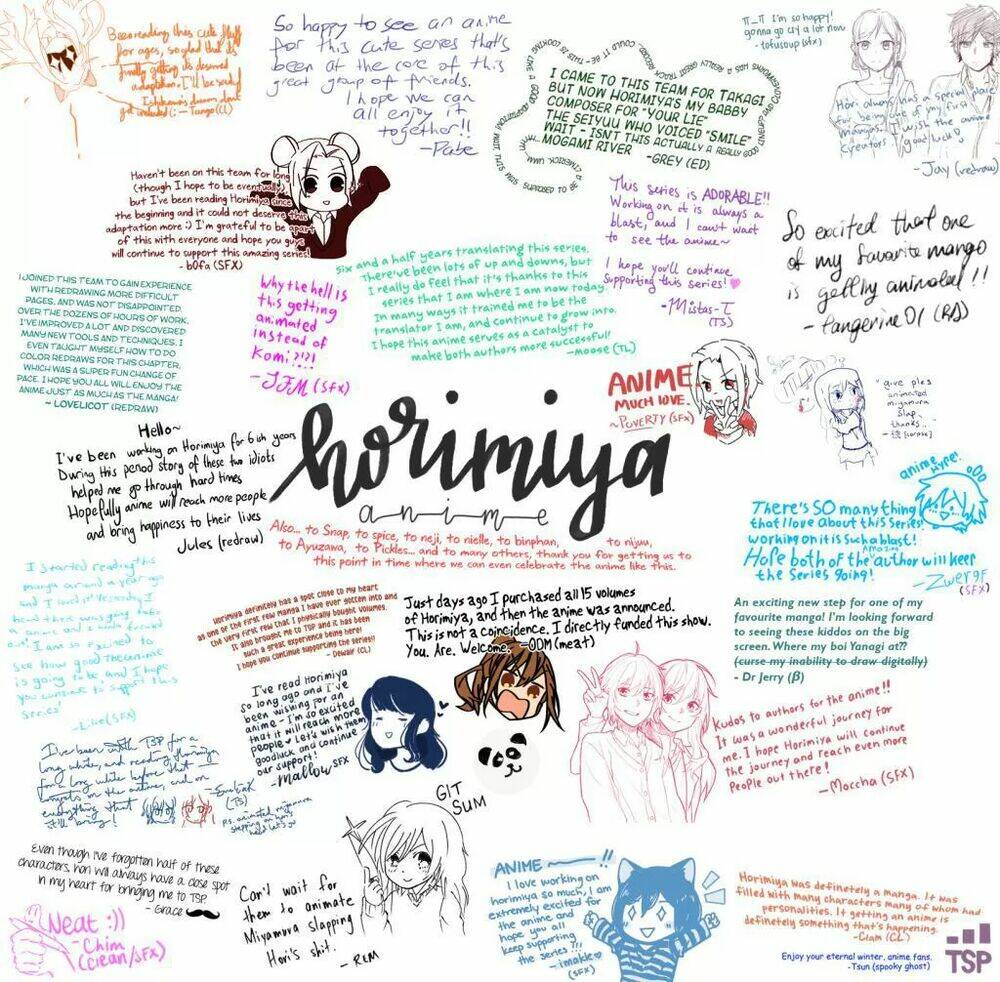 Been reading this cute fluff
for ages, so glad that its
finally getting its deserved
adaptation. I'll be sad if
Ishikawa's dream don't
get included (; — Tango (CL)
So happy to see an anime
for this cute series that's
been at the core of this
great group of friends.
I hope we can
all enjoy it
together!!
- Pabe
I CAME TO THIS TEAM FOR TAKAGI
BUT NOW HORIMIYA'S MY BABBY
COMPOSER FOR "YOUR LIE"
THE SEIYUU WHO VOICED "SMILE"
WAIT - ISN'T THIS ACTUALLY A REALLY GOOD
MOGAMI RIVER -GREY (ED)
π_π I'm so happy!
gonna go cry a lot now
- tofusoup (sfx)
Hori always has a special place
for being one of my first
mangas. I wish the anime
creators good luck
- Jay (redraw)
Haven't been on this team for long
(though I hope to be eventually)
but I've been reading Horimiya since
the beginning and it could not deserve this
adaptation more :) I'm grateful to be apart
of this with everyone and hope you guys
will continue to support this amazing series!
- b0fa (SFX)
This series is ADORABLE!!
Working on it is always a
blast, and I can't wait
to see the anime~
I hope you'll continue
supporting this series!
- Mistas-T
(TS)
So excited that one
of my favourite mango
is getting animated !!
- tangerine01 (RD)
I JOINED THIS TEAM TO GAIN EXPERIENCE
WITH REDRAWING MORE DIFFICULT
PAGES, AND WAS NOT DISAPPOINTED.
OVER THE DOZENS OF HOURS OF WORK,
I'VE IMPROVED A LOT AND DISCOVERED
MANY NEW TOOLS AND TECHNIQUES. I
EVEN TAUGHT MYSELF HOW TO DO
COLOR REDRAWS FOR THIS CHAPTER,
WHICH WAS A SUPER FUN CHANGE OF
PACE. I HOPE YOU ALL WILL ENJOY THE
ANIME JUST AS MUCH AS THE MANGA!
~ LOVELICOT (REDRAW)
Why the hell is
this getting
animated
instead of
Komi?!?!
- JFM (SFX)
Six and a half years translating this series.
There've been lots of up and downs, but
I really do feel that it's thanks to this
series that I am where I am now today.
In many ways it trained me to be the
translator I am, and continue to grow into.
I hope this anime serves as a catalyst to
make both authors more successful!
-moose (TL)
ANIME
MUCH LOVE.
~POVERTY (SFX)
"give ples
animated
miyamura
slap.
thanks.."
Hello~
I've been working on Horimiya for 6 ish years
During this period story of these two idiots
helped me go through hard times
Hopefully anime will reach more people
and bring happiness to their lives
Jules (redraw)
horimiya
anime
Also... to Snap, to spice, to neji, to nielle, to binphan, to nijuu,
to Ayuzawa, to Pickles... and to many others, thank you for getting us to
this point in time where we can even celebrate the anime like this.
anime hype!
There's SO many thing
that I love about this Series!
working on it is such a blast!
Hope both of the Amazing author will keep
the Series going!
-Zwergf
(SFX)
I started reading this
manga around a year ago
and I loved it! Yesterday I
heard there was going to be
a anime and I
out! I am so excited to
see how good the anime
is going to be and I hope
you continue to support this
series!
(SFX)
Horimiya definitely has a spot close to my heart
as one of the first few manga I have ever gotten into and
the very first row that I physically bought volumes.
It is also brought me to TSP and it has been
such a great experience being here!
I hope you continue supporting the series!!
- Dewair (CL)
Just days ago I purchased all 15 volumes
of Horimiya, and then the anime was announced.
This is not a coincidence. I directly funded this show.
You. Are. Welcome. -ODM (meat)
An exciting new step for one of my
favourite manga! I'm looking forward
to seeing these kiddos on the big
screen. Where my boi Yanagi at??
(curse my inability to draw digitally)
- Dr Jerry (β)
I've read Horimiya
so long ago and I've
been wishing for an
anime - I'm so excited
that it will reach more
people ♥ Let's wish them
goodluck and continue
our support!
- Mallow SFX
Kudos to authors for the anime!!
It was a wonderful journey for
me. I hope Horimiya will continue
the journey and reach even more
People out there!
-Moccha (SFX)
I've been with TSP for a
long while, and reading Horimiya
for a long while before that — I
everything that
still bring!
(TS)
p.s. animated miyamura
stepping on hori
let's go
GIT
SUM
Even though I've forgotten half of these
characters, hori will always have a close spot
in my heart for bringing me to TSP
- Grace
Neat :))
- Chim
(clean/SFX)
Can't wait for
them to animate
Miyamura slapping
Hori's shit.
- RLM
ANIME ~ !!
I love working on
horimiya so much, I am
extremely excited for
the anime and
hope you all
keep supporting
the series !!!
- imakie
(SFX)
Horimiya was definetely a manga. It was
filled with many characters many of whom had
personalities. It getting an anime is
definetely something that's happening.
-Clam (CL)
Enjoy your eternal winter, anime fans.
-Tsun (spooky ghost)
TSP